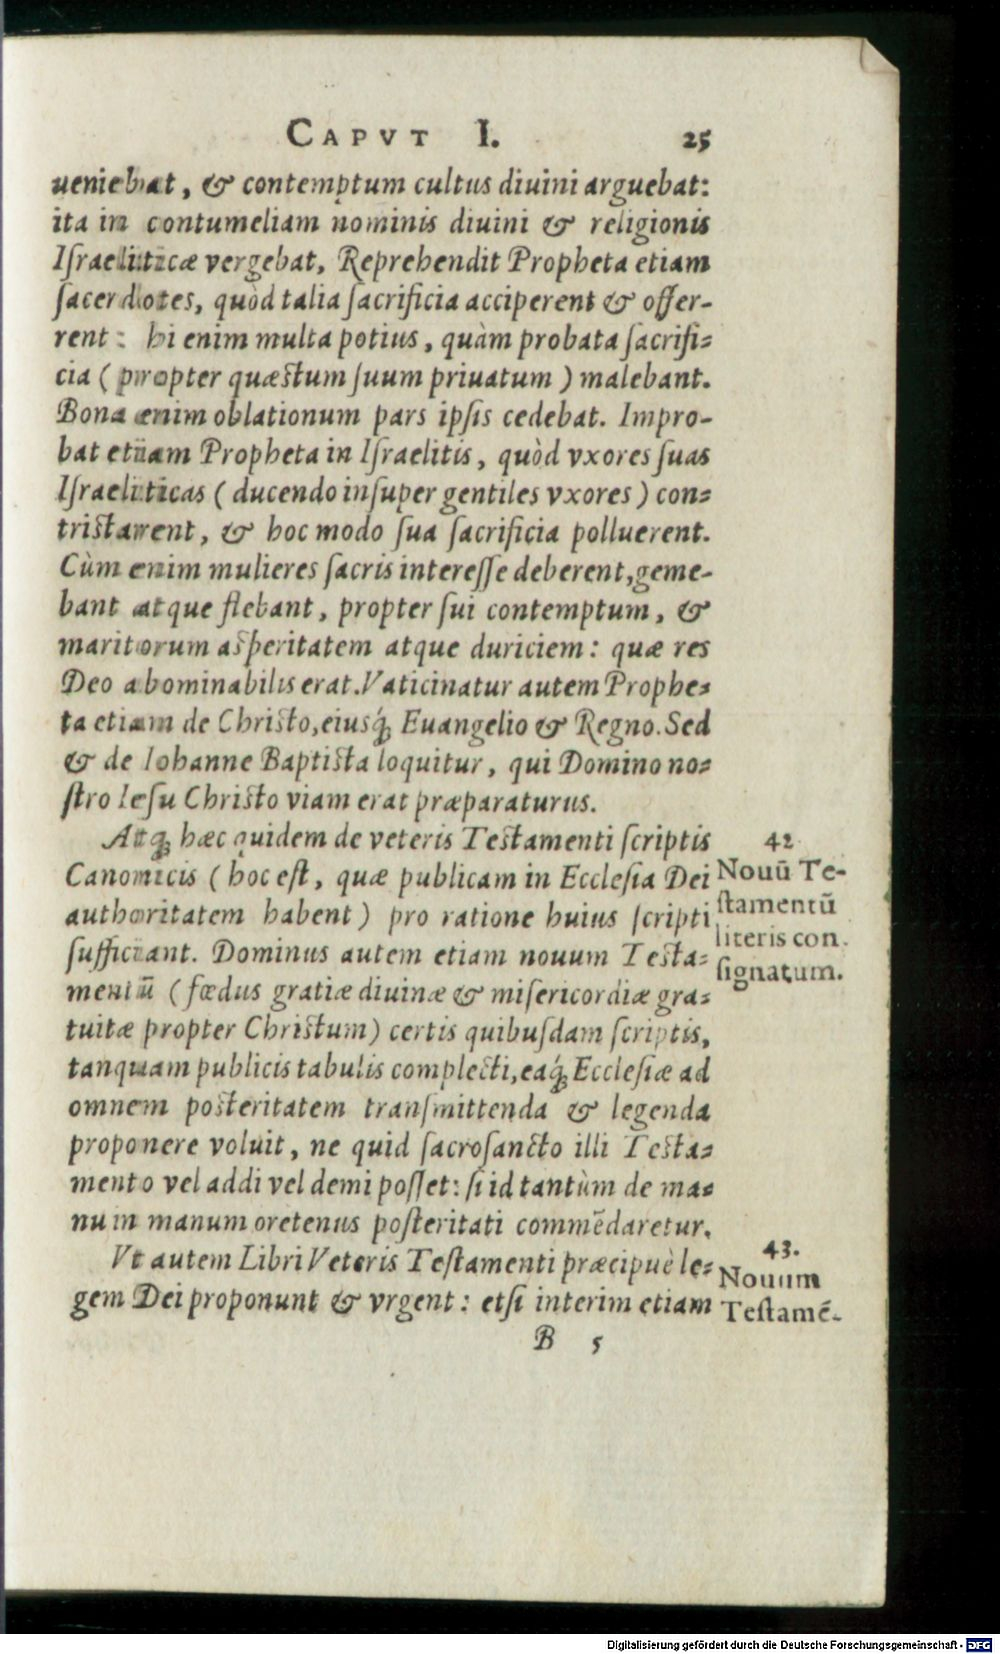 CAPVT I. 25
ueniebat, & contemptum cultus diuini arguebat:
ita in contumeliam nominis diuini & religionis
Iſraeliticæ vergebat. Reprehendit Propheta etiam
ſacerdotes, quòd talia ſacrificia acciperent & offer-
rent: hi enim multa potius, quàm probata ſacrifi-
cia (propter quæstum ſuum priuatum) malebant.
Bona enim oblationum pars ipſis cedebat. Impro-
bat etiam Propheta in Iſraelitis, quòd vxores ſuas
Iſraeliticas (ducendo inſuper gentiles vxores) con-
tristarent, & hoc modo ſua ſacrificia polluerent.
Cùm enim mulieres ſacris intereſſe deberent, geme-
bant atque flebant, propter ſui contemptum, &
maritorum asperitatem atque duriciem: quæ res
Deo abominabilis erat. Vaticinatur autem Prophe-
ta etiam de Christo, eiusq́; Euangelio & Regno. Sed
& de Iohanne Baptista loquitur, qui Domino no-
ſtro Ieſu Christo viam erat præparaturus.
Atq; hæc quidem de veteris Testamenti ſcriptis
Canonicis (hoc eſt, quæ publicam in Ecclesia Dei
authoritatem habent) pro ratione huius ſcripti
ſufficiant. Dominus autem etiam nouum Testa-
mentū (fœdus gratiæ diuinæ & miſericordiæ gra-
tuitæ propter Christum) certis quibuſdam ſcriptis,
tanquam publicis tabulis complecti, eaq́; Eccleſiæ ad
omnem posteritatem tranſmittenda & legenda
proponere voluit, ne quid ſacroſancto illi Testa-
mento vel addi vel demi poſſet: ſi id tantùm de ma-
nu in manum oretenus poſteritati commēdaretur.
Vt autem Libri Veteris Teſtamenti præcipuè le-
gem Dei proponunt & vrgent: etſi interim etiam
B 5
42
Nouū Te-
ſtamentū
literis con-
ſignatum.
43.
Nouum
Teſtamē-
Digitalisierung gefördert durch die Deutsche Forschungsgemeinschaft - DFG